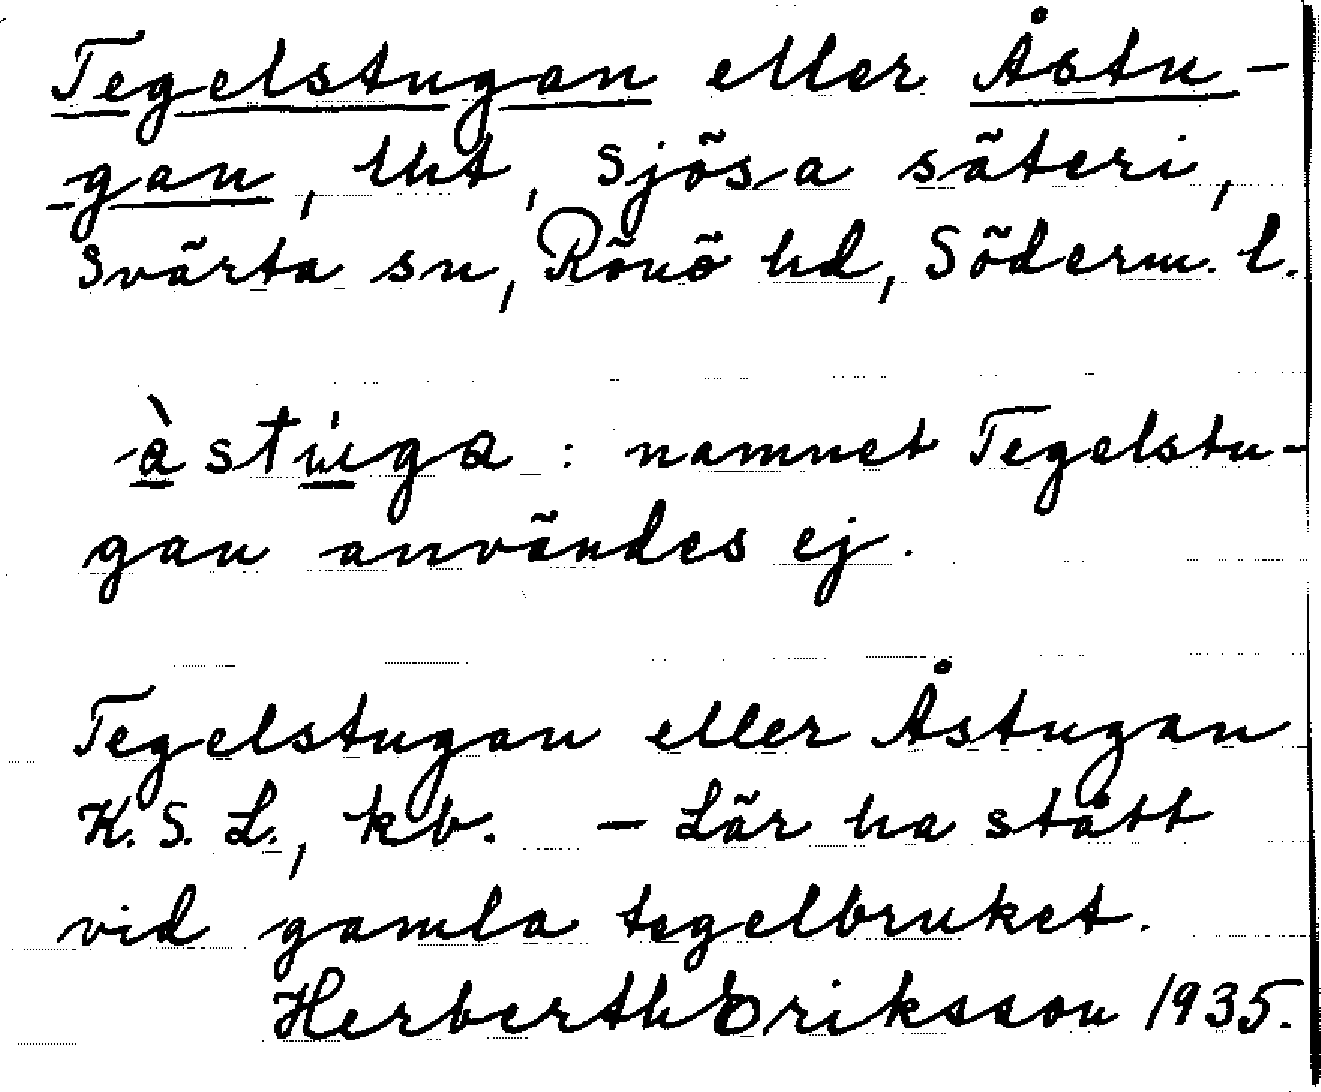 Tegelstugan eller Åstu-
gan, lht, Sjösa säteri,
Svärta sn, Rönö hd, Söderm. l.
àstu̍ga : namnet Tegelstu-
gan användes ej.
Tegelstugan eller Åstugan
K. S. L., kb. - Lär ha stått
vid gamla tegelbruket.
Herberth Eriksson 1935.